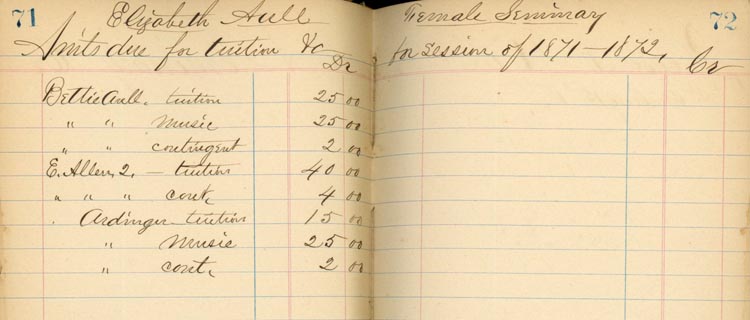 71 Elizabeth Aull Female Seminary 72
Am'ts due for tuition &c for session of 1871-1872,
Dr Cr
Bettie Aull. tuition 25 00
" " Music 25 00
" " contingent 2 00
E. Allen, 2, - tuition 40 00
" " " cont, 4 00
Ardinger tuition 15 00
" Music 25 00
" cont, 2 00